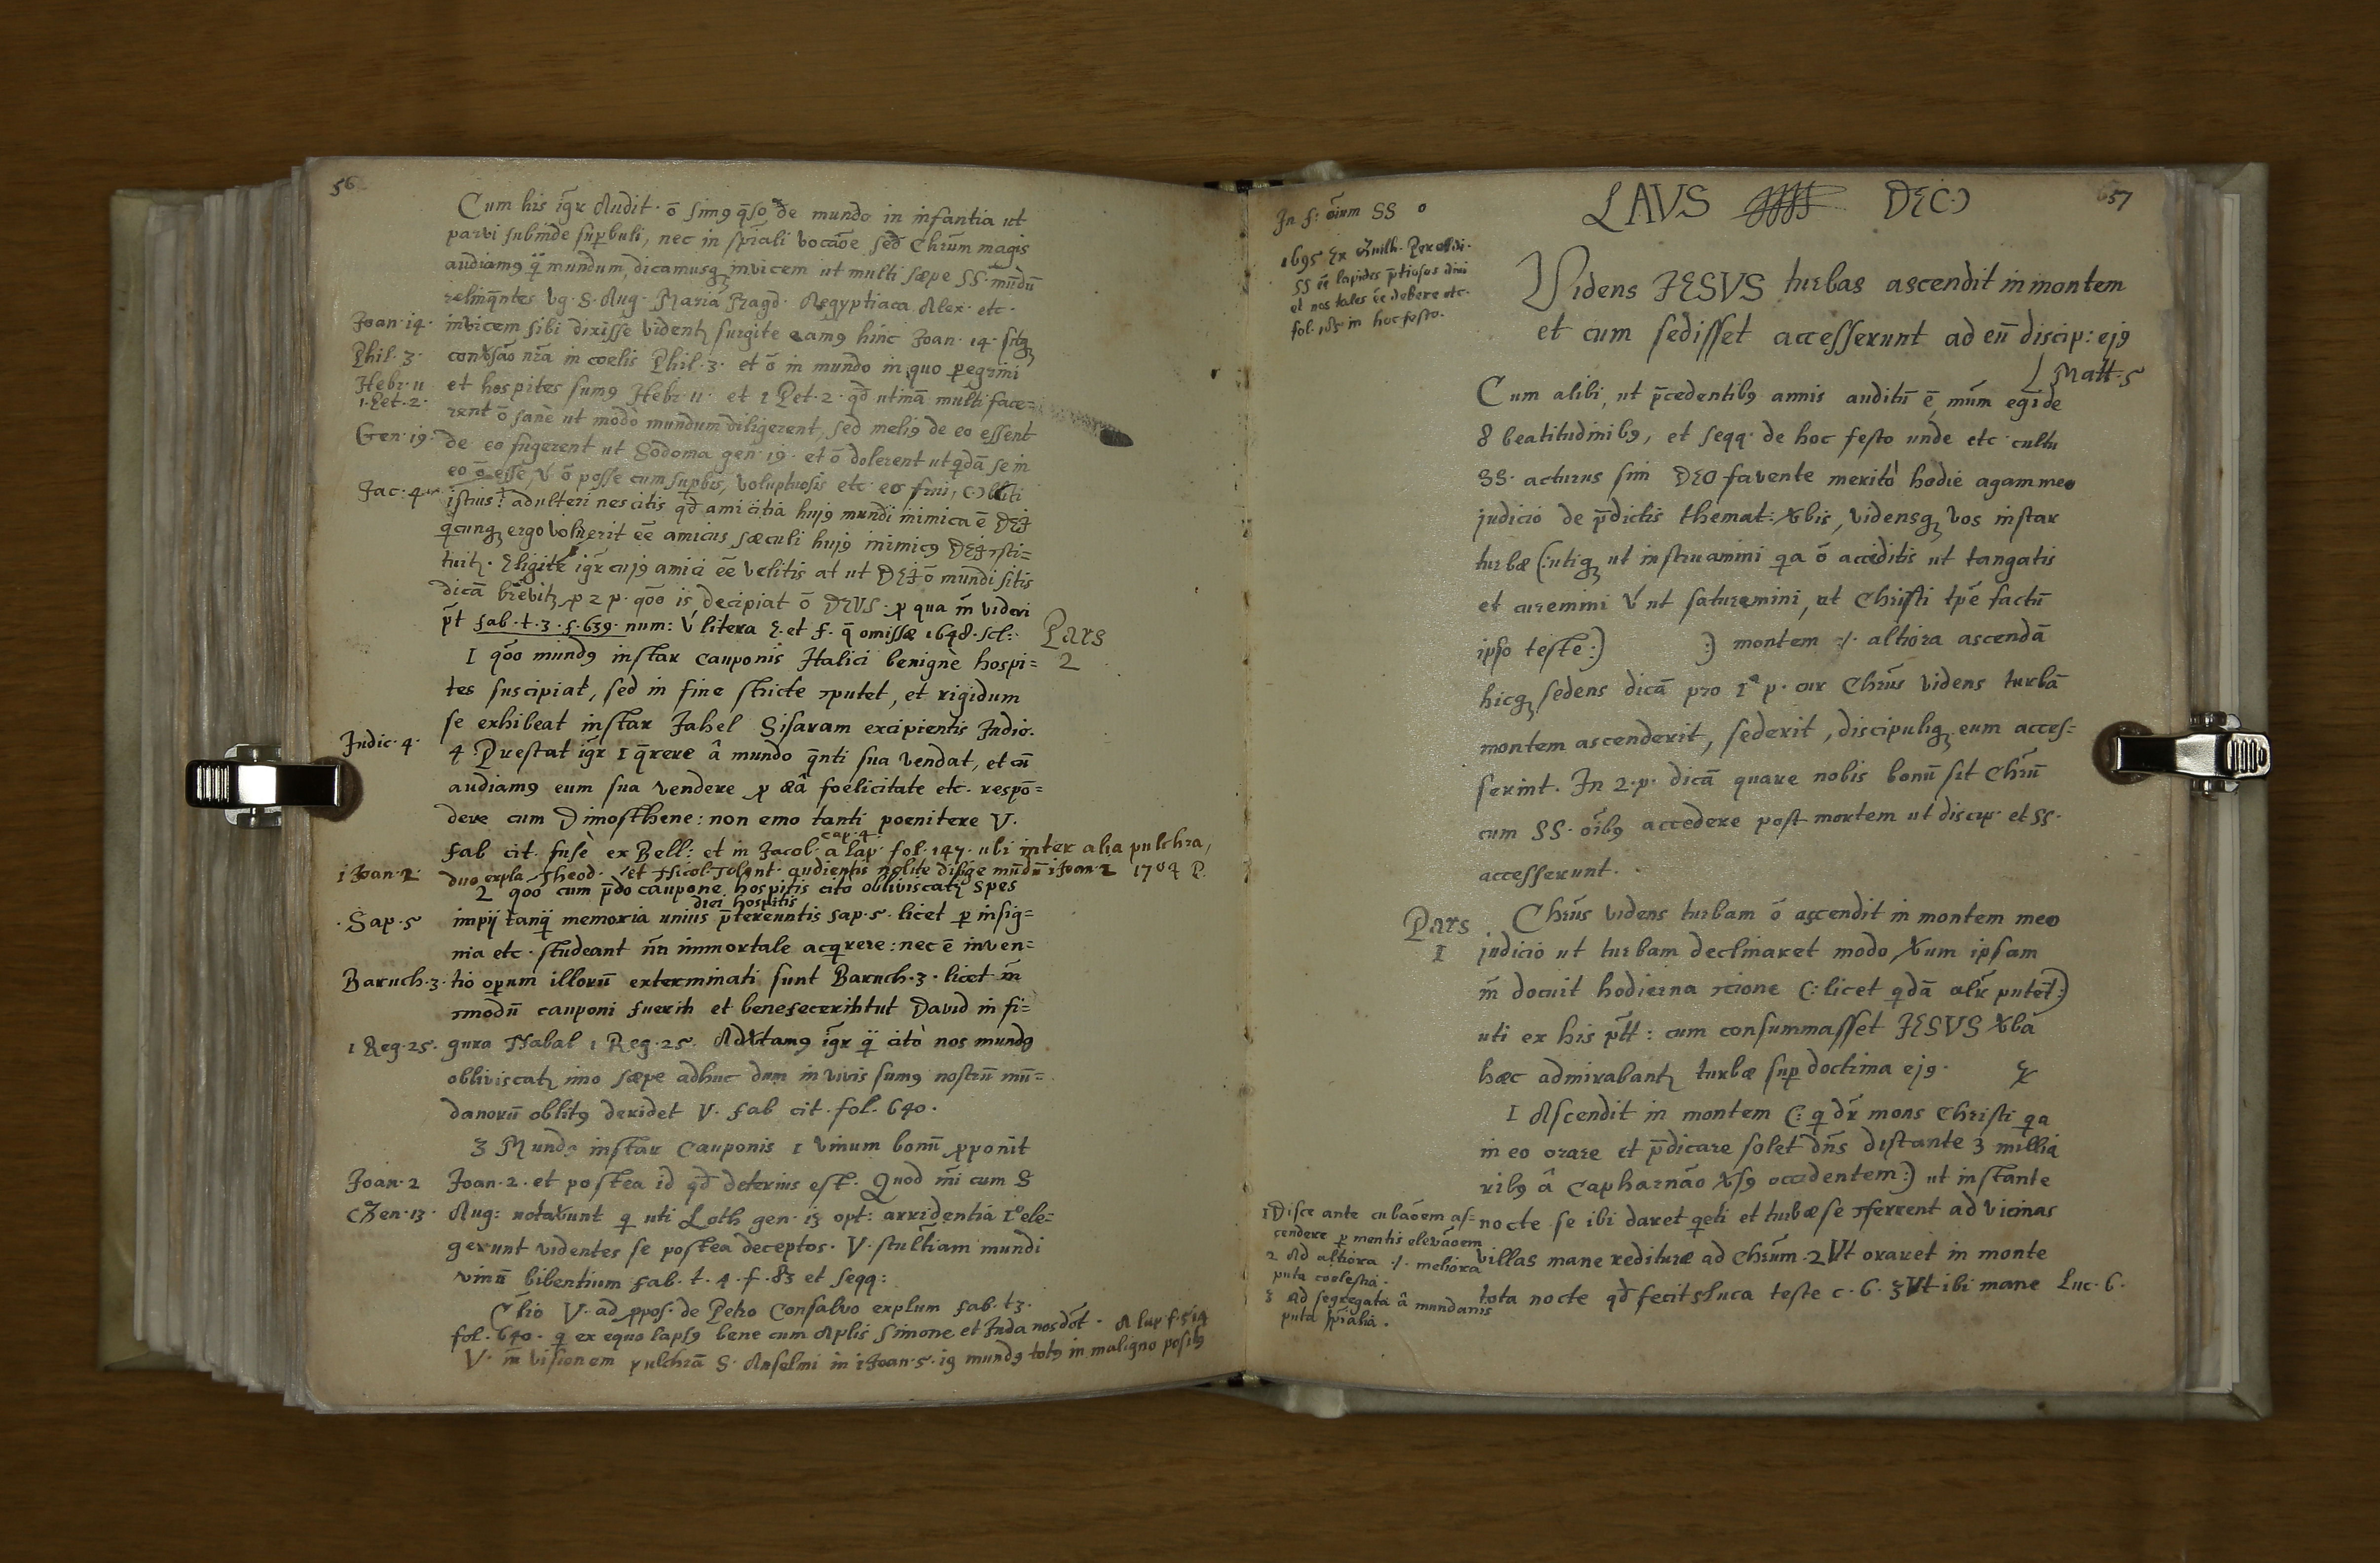 56
Cum his igr̃ Audit. õ simq q̃so de mundo in infantia ut
parvi subinde suꝑbuli, nec in spĩali vocaõe sed Chrũm magis
audiamꝯ q̃ mundum, dicamusqꝫ invicem ut multi sæpe SS. mũdũ
relinq̃ntes Vg. S. Aug. Mariã Magd. Ægyptiaca Alex. etc.
Joan. 14. invicem sibi dixisse videntꝫ surgite eamꝯ hinc Joan. 14.
Phil. 3. nr̃a in coelis Phil. 3. et õ in mundo in quo ꝑegrini
Hebr. 11 et hospites sumꝯ Hebr. 11. et 1 Pet. 2. qd̃ utinã multi face=
1. Pet. 2. rent õ sanè ut modò mundum diligerent, sed meliꝯ de eo essent
Gen. 19. de eo fugerent ut Sodoma gen. 19. et õ dolerent ut qdã se in
eo õ esse, V õ posse cum suꝑbis, voluptuosis etc. eo frui,
Jac. 4 istius: adulteri nescitis qd̃ amicitia hujꝯ mundi inimica ẽ DEI
qcunqꝫ ergo voluerit eẽ amicus sæculi hujꝯ inimicꝯ DEI ꝯsti=
tuitꝫ. Eligite igr̃ cujꝯ amici eẽ velitis at ut DEI õ mundi sitis
dicã brevitꝫ ꝓ 2 p. qõo is decipiat õ DEUS. ꝓ qua m̃ videri
p̃t fab. t. 3. f. 639. num: V litera E. et F. q̃ omissæ 1648. scl:
Pars
2
I qõo mundꝯ instar cauponis Italici benignè hospi=
tes suscipiat, sed in fine stricte ꝯputet, et rigidum
se exhibeat instar Jahel Sisaram excipientis Judic.
Judic. 4. 4 Præstat igr̃ I q̃rere â mundo q̃nti sua vendat, et cũ
audiamꝯ eum sua vendere ꝓ eâ foelicitate etc. respõ=
dere cum Dimosthene: non emo tanti poenitere V.
fab cit. fusè ex Bell: et in Jacob. cap. 4. a lap. fol. 147. ubi inter alia pulchra,
1 Joan. 2. duo expla Theod. et Nicol. Tolent. audientis nolite dilige mũdũ 1 Joan. 2 1704 P.
2 qõo cum p̃do caupone hospitis cito obliviscatꝫ spes
Sap. 5 impij tanq̃ memoria unius diei hospitis p̃tereuntis sap. 5. licet ꝑ insig=
nia etc. studeant nñ immortale acqrere: nec ẽ inven=
Baruch. 3. tio oꝑum illorũ exterminati sunt Baruch. 3. licet m̃
ꝯmodũ cauponi fuerint et benefecerint ut David in fi=
1 Reg. 25. gura Nabal 1 Reg. 25. Advtamꝯ igr̃ q̃ citò nos mundꝯ
obliviscatꝫ imo sæpe adhuc dum in vivis sumꝯ nostrũ mũ=
danorũ oblitꝯ deridet V. fab cit. fol. 640.
3 Mundꝯ instar cauponis I vinum bonũ ꝓponit
Joan. 2 Joan. 2. et postea id qd̃ deterius est. Quod m̃i cum S
Gen. 13. Aug: notavunt q uti Loth gen. 13 opt: arridentia I° ele=
gerunt videntes se postea deceptos. V. stultiam mundi
vinũ bibentium fab. t. 4. f. 83 et seqq:
V. ad ꝓpos. de Petro Consalvo explum fab. t 3.
fol. 640. q ex equo lapsꝯ bene cum Aplis Simone et Juda nos dõt. A lap f. 514
V. m̃ visionem pulchrã S. Anselmi in 1 Joan. 5. 19 mundꝯ totꝯ in maligno positꝯ
57
In f: oĩum SS
1695 Ex
SS eẽ lapides p̃tiosos
et nos tales eẽ debere etc.
fol. in hoc festo.
LAUS DEO
Videns JESUS turbas ascendit in montem
et cum sedisset accesserunt ad eũ discip: ejꝯ
Matt. 5
Cum alibi, ut p̃cedentibꝯ annis auditũ ẽ, mũm egi de
8 beatitudinibꝯ, et seqq. de hoc festo unde etc. cultu
SS. acturus sim DEO favente meritò hodie agam meo
judicio de p̃dictis themat: vbis, vidensqꝫ vos instar
turbæ (: utiqꝫ ut instruamini qa õ acceditis ut tangatis
et curemini V ut saturemini, ut Christi tpẽ factũ
ipso teste:) :) montem ⁒ altiora ascendã
hicqꝫ sedens dicã pro Iª p. cur Chrũs videns turbã
montem ascenderit, sederit, discipuliqꝫ eum acces=
serint. In 2. p. dicã quare nobis bonũ sit Chrũ
cum SS. oĩbꝯ accedere post mortem ut discip. et SS.
accesserunt.
Pars
I
Chrũs videns turbam õ ascendit in montem meo
judicio ut turbam declinaret modo, vum ipsam
m̃ docuit hodierna ꝯcione (: licet qdã alr̃ putẽt:)
uti ex his ptt̃: cum consummasset JESUS vba
hæc admirabantꝫ turbæ suꝑ doctrina ejꝯ.
I Ascendit in montem (: q dr̃ mons Christi qa
in eo orare et p̃dicare solet Dñs distante 3 millia
ribꝯ â Capharnão vsꝯ occidentem:) ut instante
nocte se ibi daret qeti et turbæ se ꝯferrent ad vicinas
villas mane redituræ ad Chrũm. 2 Ut oraret in monte
tota nocte qd̃ fecit s Luca teste c. 6. 3 Ut ibi mane Luc. 6.
1 Disce ante cubaõem as=
cendere ꝑ mentis elevaõem
2 Ad altiora ⁒ meliora
puta coelestia.
3 ad segregata â mundanis
puta spĩalia.